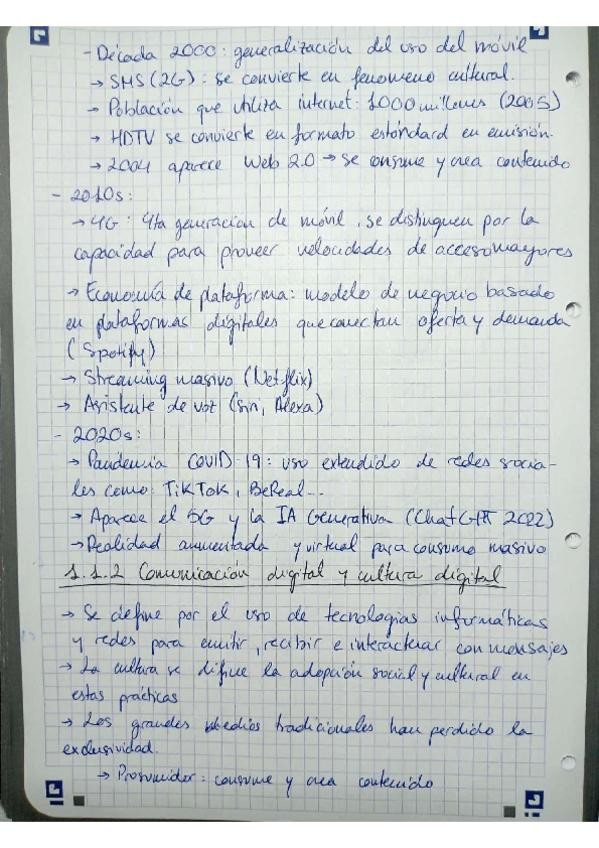 - Década 2000: generalización del uso del móvil
→ SMS (2G): se convierte en fenomeno cultural.
→ Población que utiliza internet: 1000 millones (2005)
→ HDTV se convierte en formato estándard en emisión.
→ 2004 aparece Web 2.0 → se consume y crea contenido
- 2010s:
→ 4G: 4ta generacion de móvil, se distinguen por la
capacidad para proveer velocidades de acceso mayores
→ Economía de plataforma: modelo de negocio basado
en plataformas digitales que conectan oferta y demanda
(Spotify)
→ Streaming masivo (Netflix)
→ Asistente de voz (Siri, Alexa)
- 2020s:
→ Pandemia COVID-19: uso extendido de redes socia-
les como: TikTok, BeReal...
→ Aparece el 5G y la IA Generativa (ChatGPT 2022)
→ Realidad aumentada y virtual para consumo masivo
1.1.2 Comunicación digital y cultura digital
→ Se define por el uso de tecnologías informáticas
y redes para emitir, recibir e interactuar con mensajes
→ La cultura se difine la adopción social y cultural en
estas prácticas
→ Los grandes medios tradicionales han perdido la
exclusividad.
→ Prosumidor: consume y crea contenido